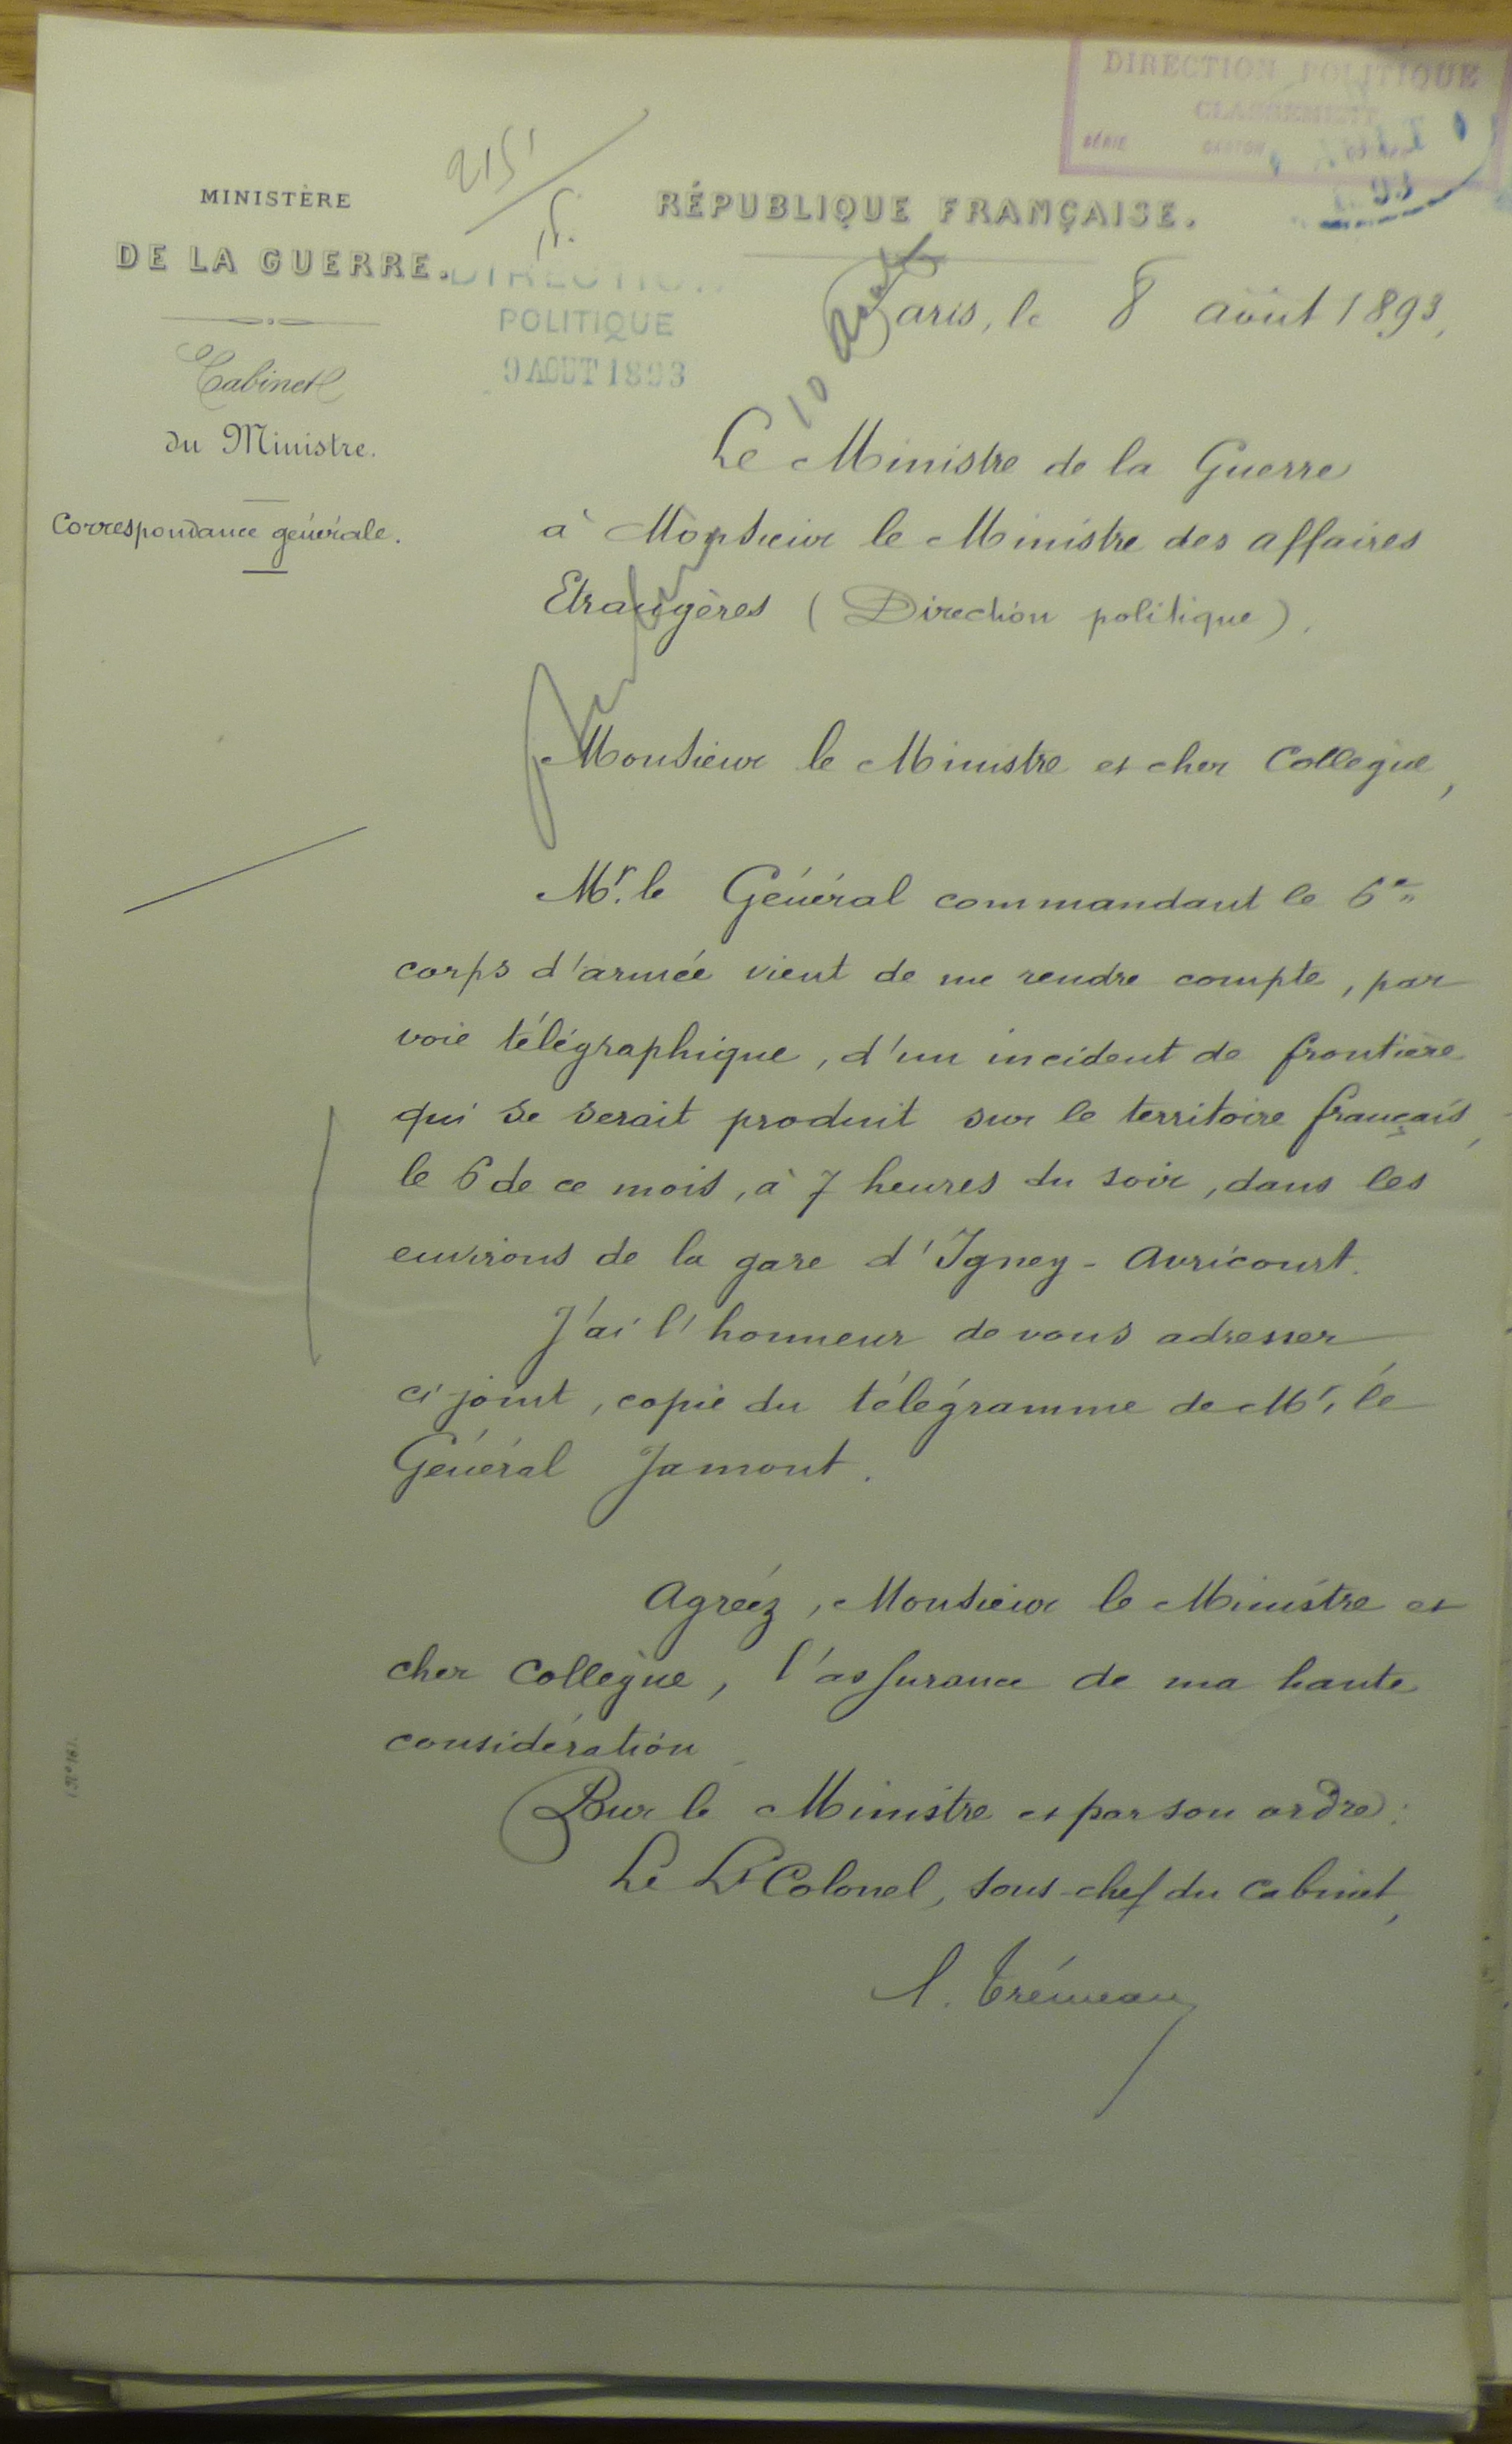 DIRECTION POLITIQUE
CLASSEMENT
SÉRIE CARTON
93
215
MINISTÈRE
DE LA GUERRE.
RÉPUBLIQUE FRANÇAISE.
DIRECTION
POLITIQUE
9 AOUT 1893
Paris, le 8 août 1893,
10 août
Cabinet
du Ministre.
Correspondance générale.
Le Ministre de la Guerre
à Monsieur le Ministre des affaires
Etrangères (Direction politique).
Monsieur le Ministre et cher Collègue,
Mr. le Général commandant le 6e
corps d'armée vient de me rendre compte, par
voie télégraphique, d'un incident de frontière
qui se serait produit sur le territoire français,
le 6 de ce mois, à 7 heures du soir, dans les
environs de la gare d'Igney-Avricourt.
J'ai l'honneur de vous adresser
ci-joint, copie du télégramme de Mr. le
Général Jamont.
Agréez, Monsieur le Ministre et
cher Collègue, l'assurance de ma haute
considération
Pour le Ministre et par son ordre:
Le Lt Colonel, sous-chef du Cabinet,
Trémeau